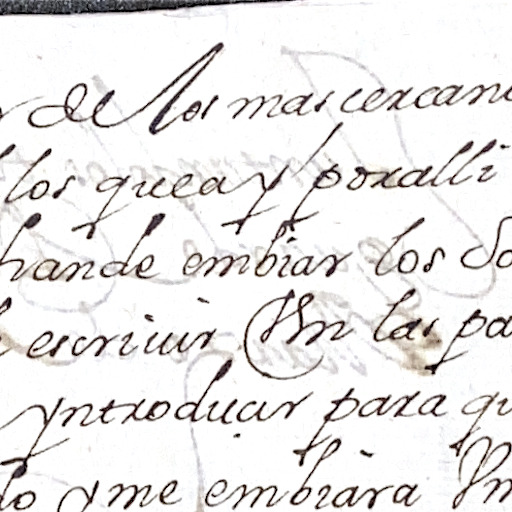 de los mas cercano
los que ay por alli
hande embiar los do
escriuir Vm las pa
yntroduzir para qu
do y me embiara Vm